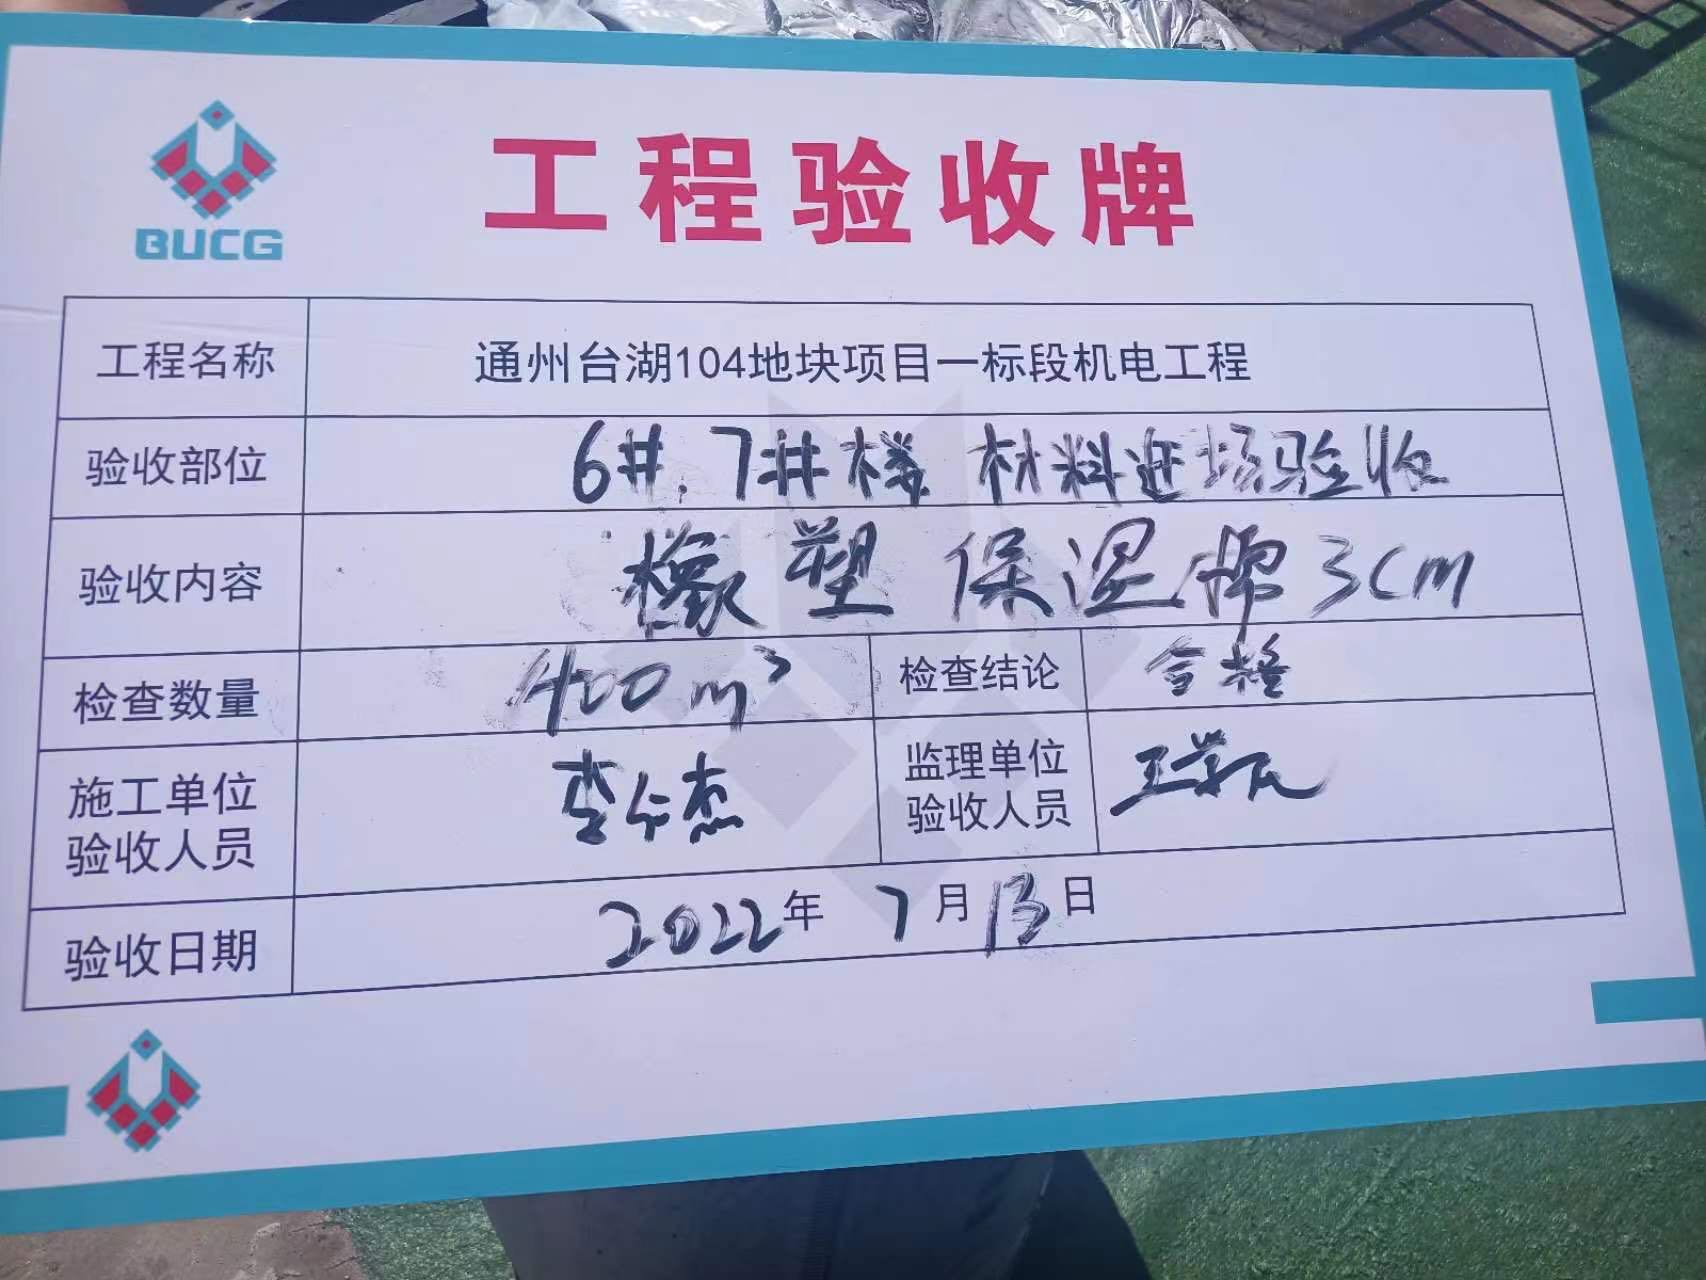 BUCG
工程验收牌
工程名称 通州台湖104地块项目一标段机电工程
验收部位 6#、7#楼 材料进场验收
验收内容 橡塑保温棉3cm
检查数量 400m³ 检查结论 合格
施工单位验收人员 李 杰 监理单位验收人员 王学
验收日期 2022年7月13日